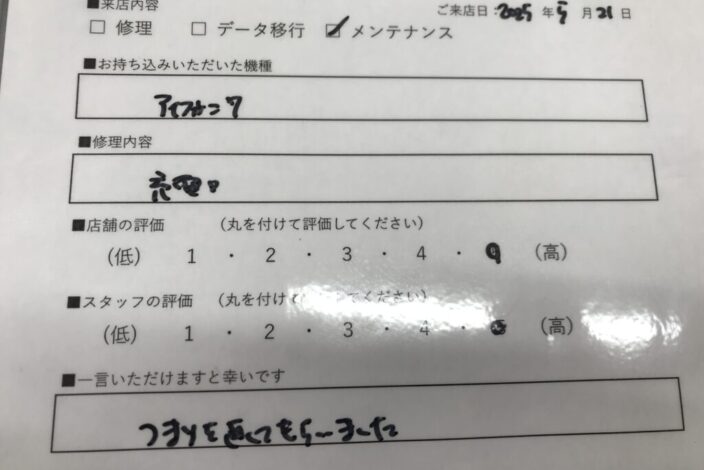 ■来店内容
ご来店日:2025年5月21日
□ 修理 □ データ移行 ☑ メンテナンス
■お持ち込みいただいた機種
アイフォーン7
■修理内容
充電口
■店舗の評価 （丸を付けて評価してください）
(低) 1 ・ 2 ・ 3 ・ 4 ・ (高)
■スタッフの評価 （丸を付けてください）
(低) 1 ・ 2 ・ 3 ・ 4 ・ (高)
■一言いただけますと幸いです
つまりを直してもらいました